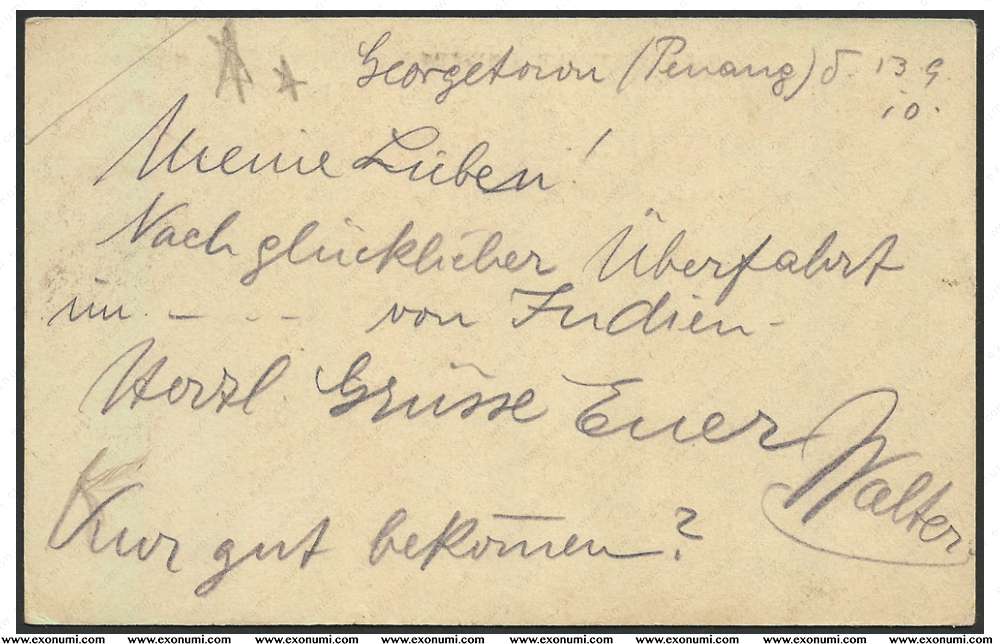 Georgetown (Penang) d. 13 9.
10.
Meine Lieben!
Nach glücklicher Überfahrt
im - - - - von Indien -
Herzl Grüsse Euer
Walter
Kur gut bekom̄en?
www.exonumi.com www.exonumi.com www.exonumi.com www.exonumi.com www.exonumi.com www.exonumi.com www.exonumi.com www.exonumi.com